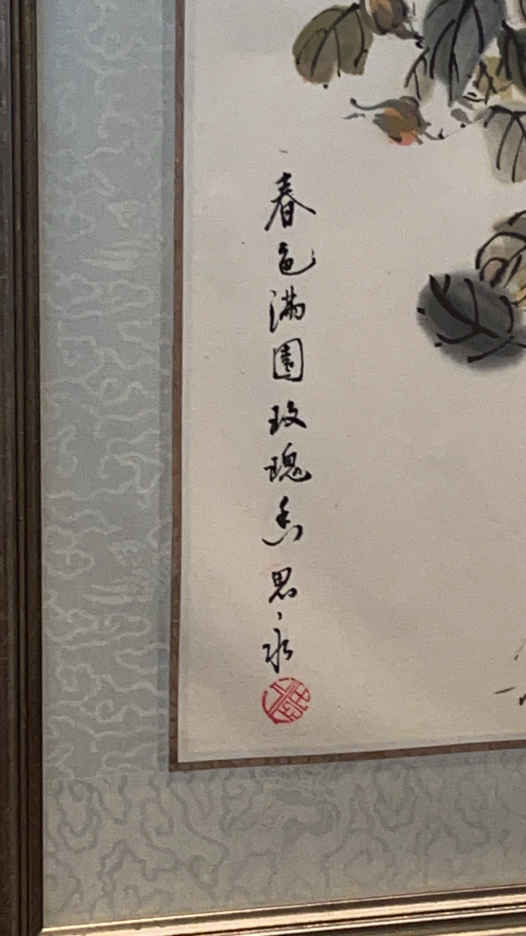 春色满園玫瑰香思冰